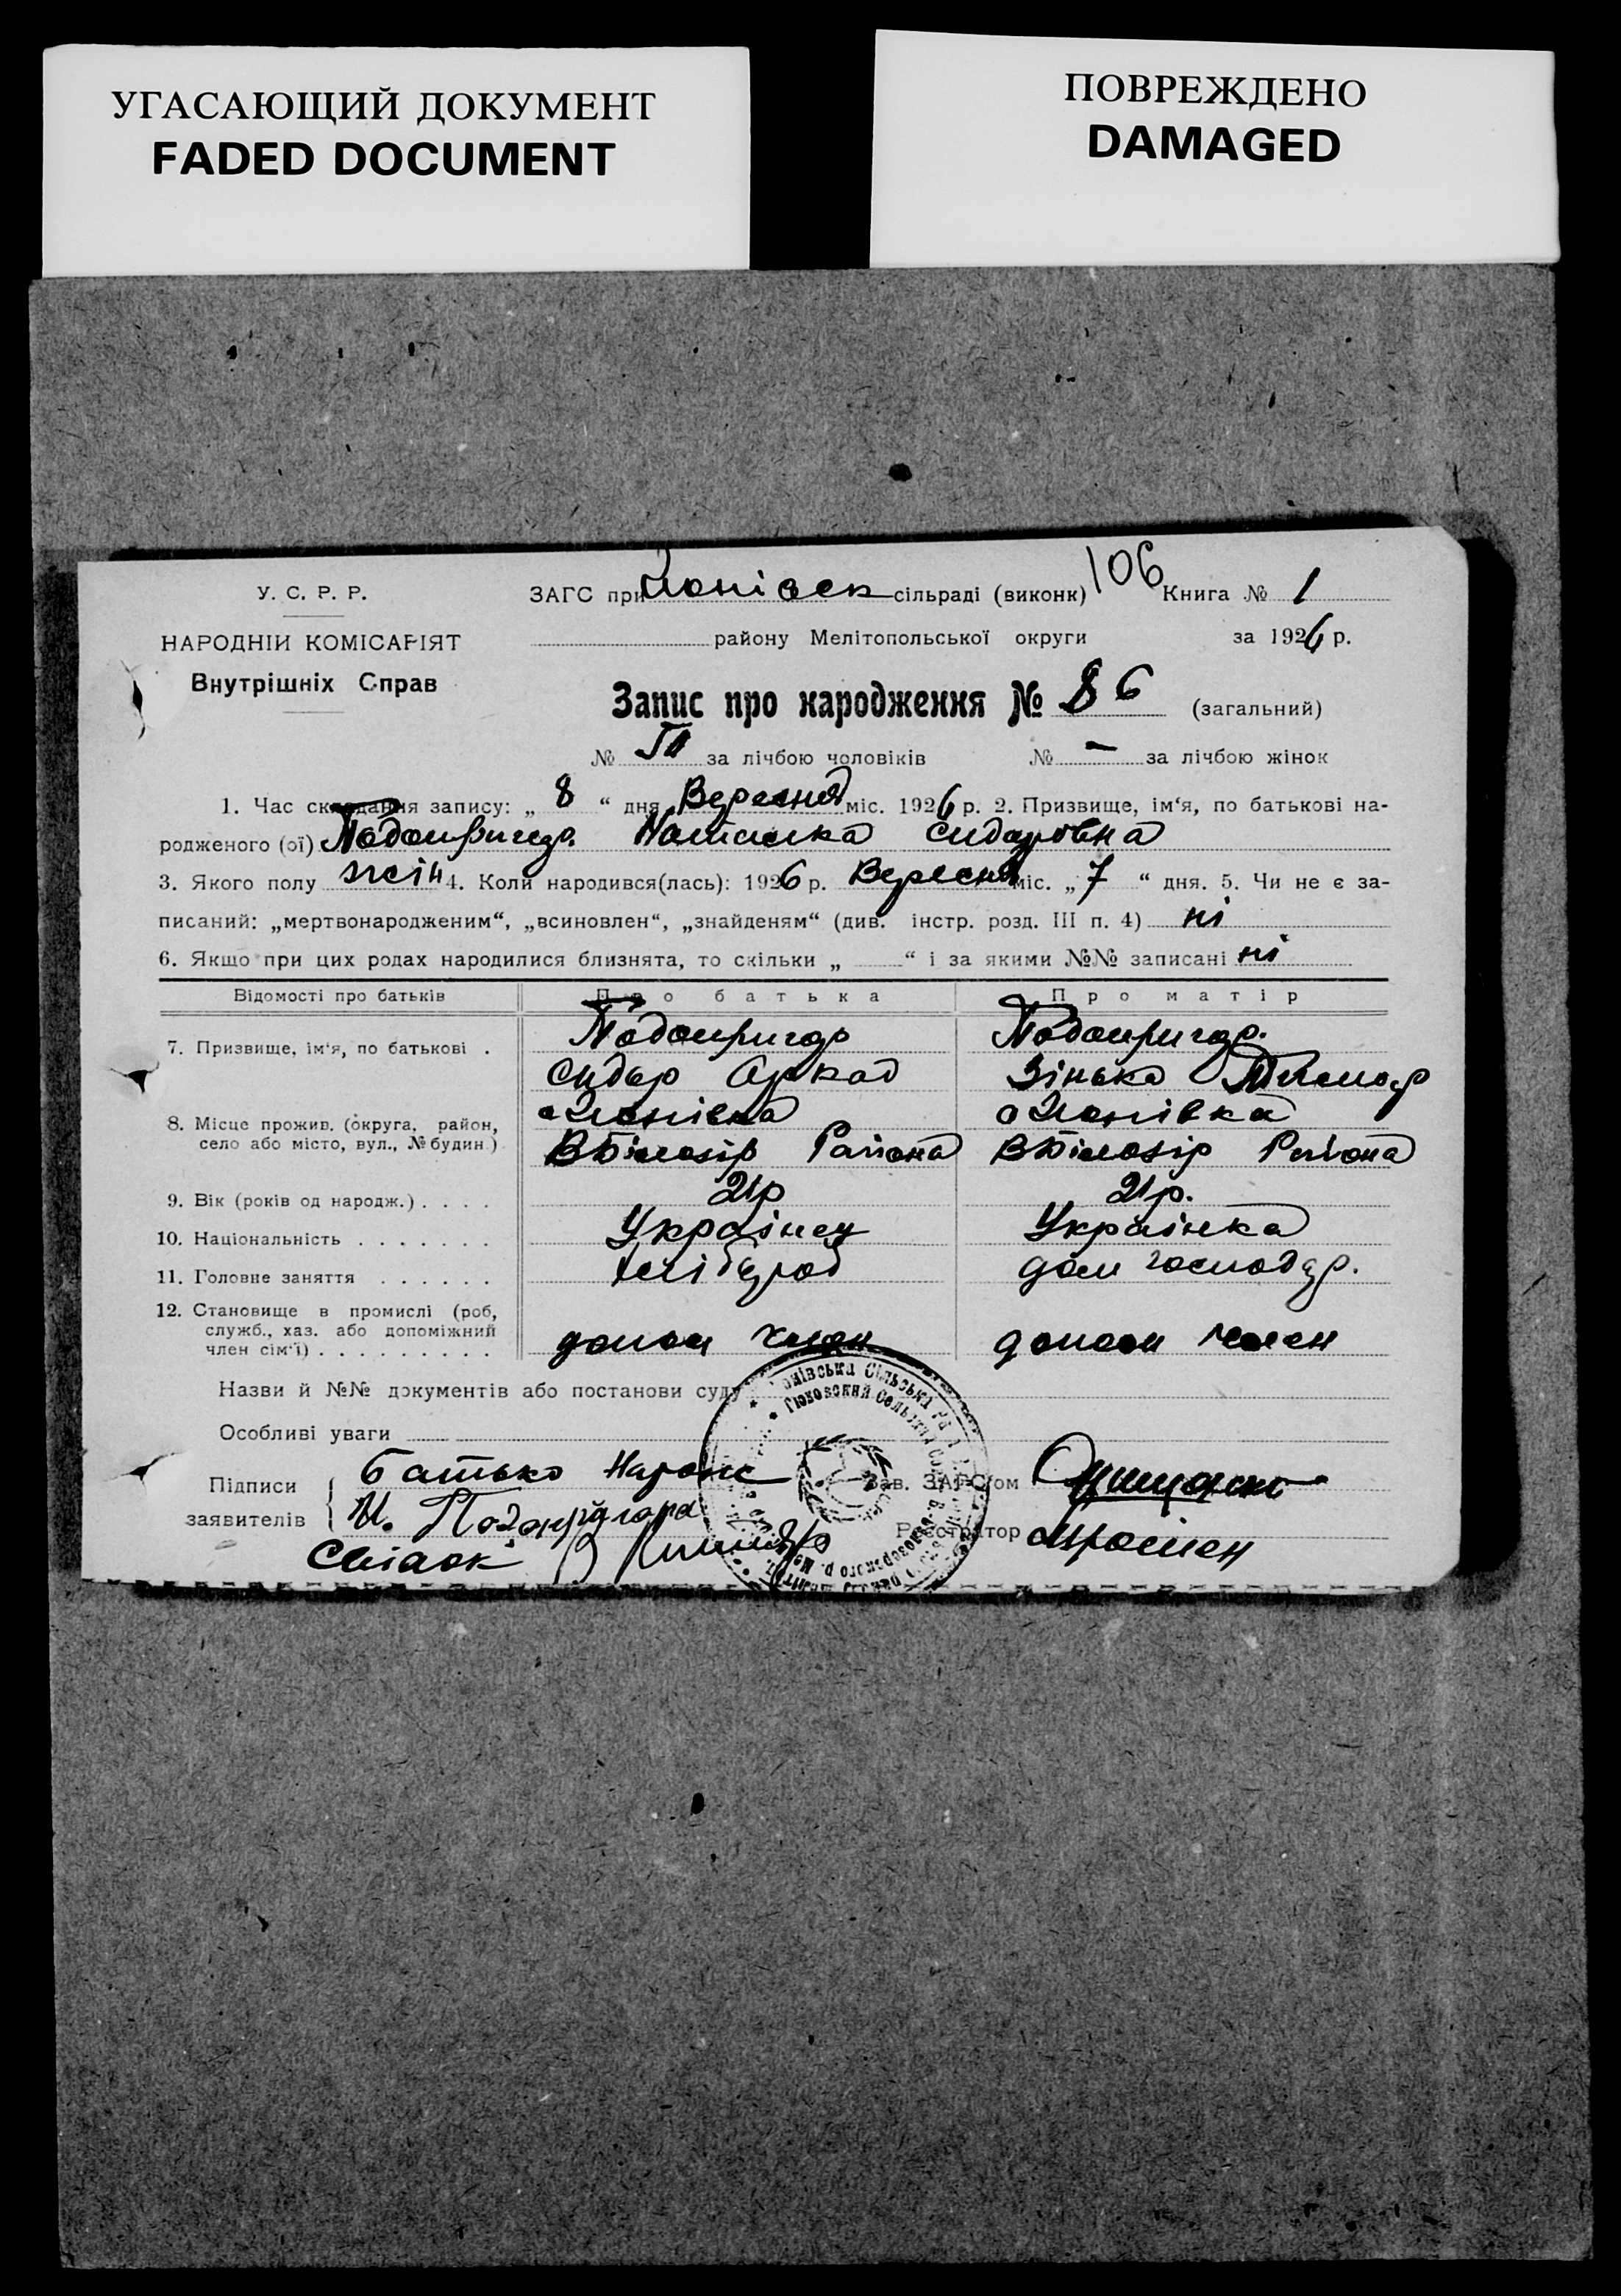 УГАСАЮЩИЙ ДОКУМЕНТ
FADED DOCUMENT
ПОВРЕЖДЕНО
DAMAGED
У. С. Р. Р.
НАРОДНІЙ КОМІСАРІЯТ
Внутрішніх Справ
ЗАГС при сільраді (виконк) 106 Книга № 1
району Мелітопольської округи за 1926 р.
Запис про народження № 86 (загальний)
№ за лічбою чоловіків № — за лічбою жінок
1. Час складання запису: „ 8 “ дня Вересня міс. 1926 р. 2. Призвище, ім‘я, по батькові на-
родженого (ої) Подопригора Наташка Сидоровна
3. Якого полу жін 4. Коли народився(лась): 1926 р. Вересня міс. „ 7 “ дня. 5. Чи не є за-
писаний: „мертвонародженим“, „всиновлен“, „знайденям“ (див. інстр. розд. III п. 4) ні
6. Якщо при цих родах народилися близнята, то скільки „ “ і за якими №№ записані ні
Відомості про батьків Про батька Про матір
7. Призвище, ім‘я, по батькові . Подопригора Подопригор.
Сидор Аркад Зінька
8. Місце прожив. (округа, район,
село або місто, вул., № будин.)
ВБілозір Района ВБілозір Района
9. Вік (років од народж.) . . . . 21р 21р.
10. Національність . . . . . . . Українец Українка
11. Головне заняття . . . . . . хлібороб дом господар.
12. Становище в промислі (роб,
служб., хаз. або допоміжний
член сім‘ї) . . . . . . . . . допом член допом член
Назви й №№ документів або постанови суду
Особливі уваги
Підписи
заявителів
Батько
И. Подопригора
Зав. ЗАГС‘ом
Реєстратор